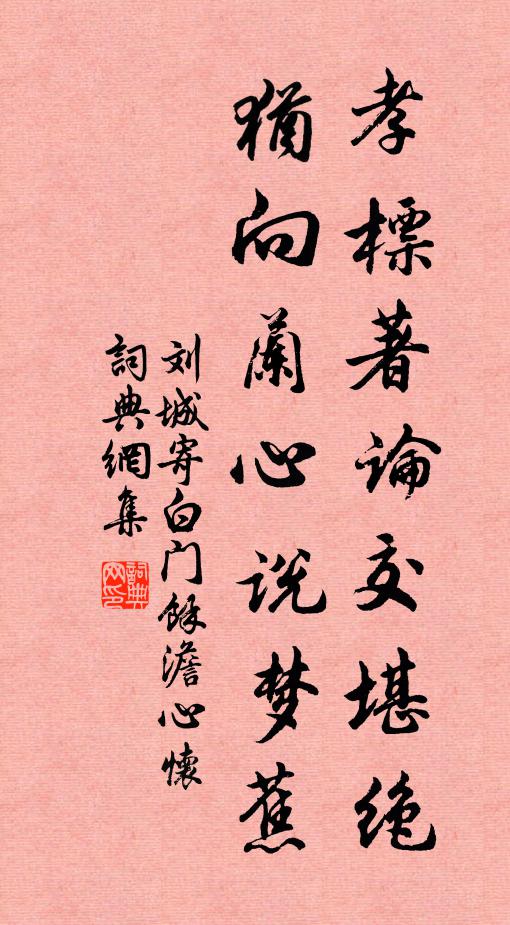 孝標著論交堪绝
猶向蘭心说梦蕉
刘城寄白门餘澹心懷
詞典網集
詞典網印